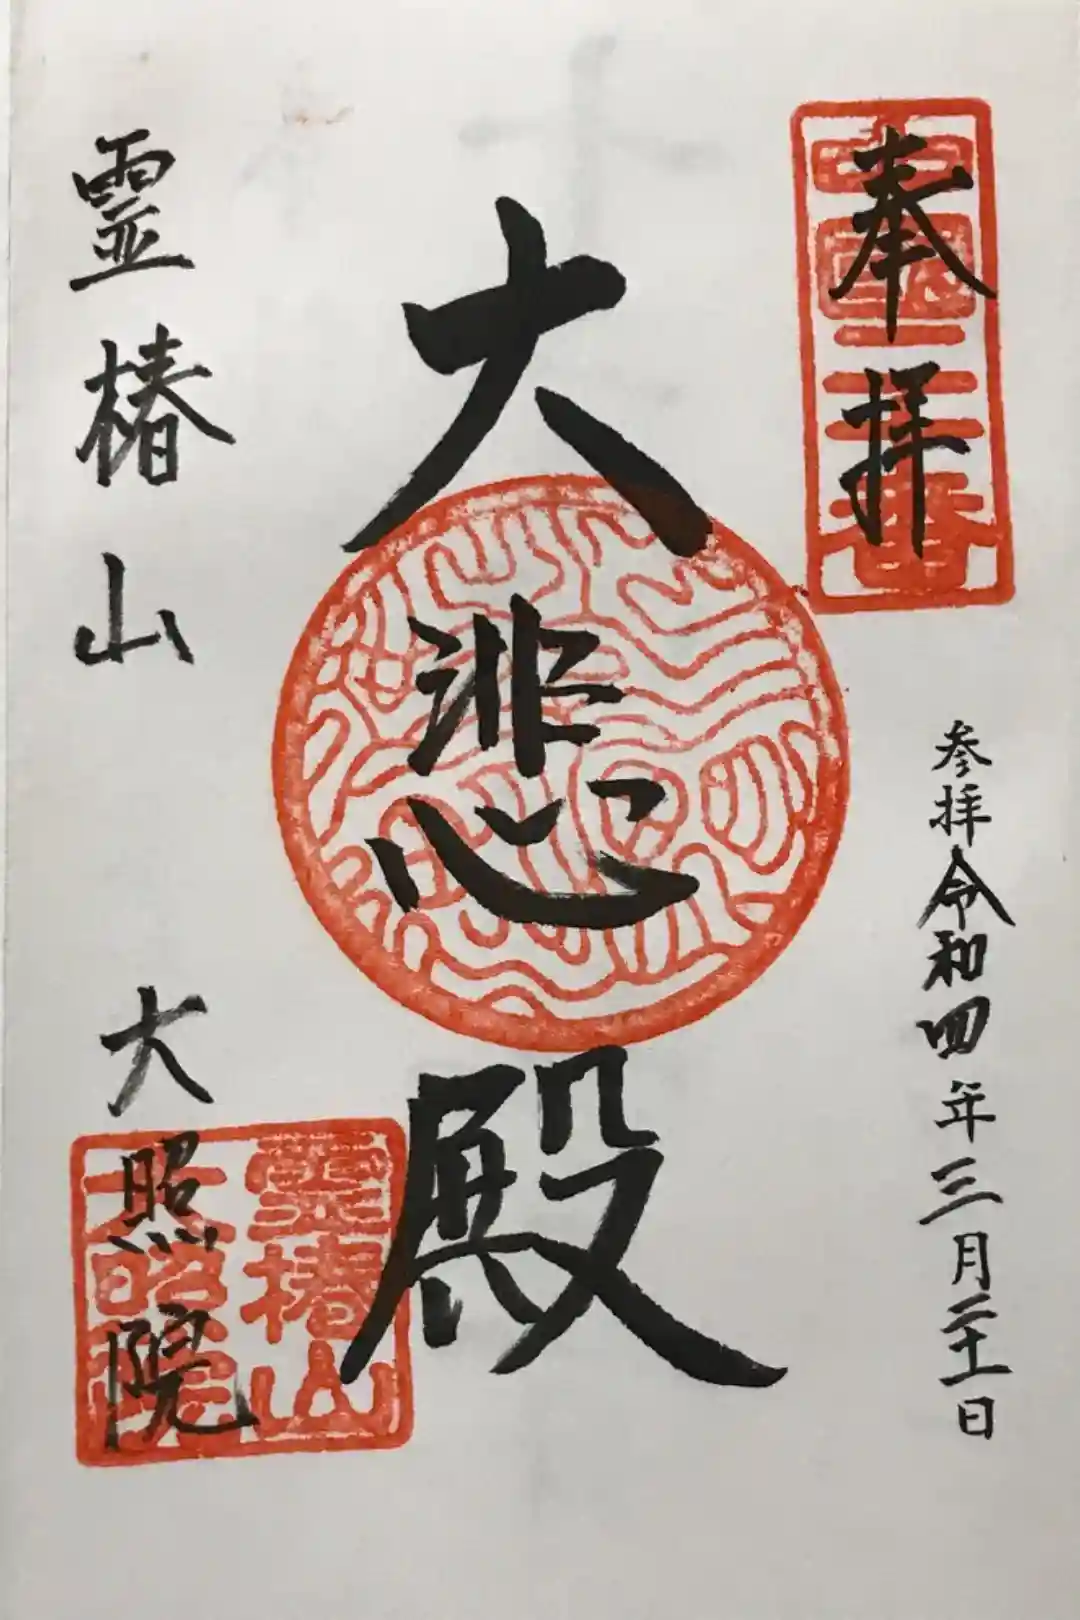 奉拝
参拝令和四年三月二十一日
大悲殿
霊椿山 大照院
霊椿山
大照院